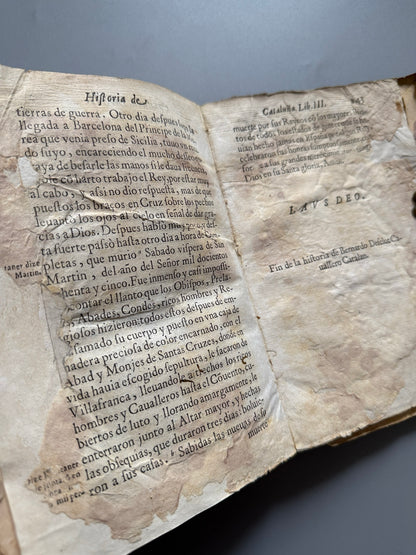 Historia de
tierras de guerra. Otro dia despues
llegada a Barcelona del Principe de la Mo
rea que venia preso de Sicilia, tuuo en
do suyo, encareciendo el mucho desseo
aya de besarle las manos si le daua
có harto trabajo el Rey, por estar
al cabo, y assi no dio respuesta, mas de que
puestos los braços en Cruz sobre los pechos
leuantò los ojos al cielo en señal de dar gra-
cias a Dios. Despues hablò muy
ta fuerte passò hasta otro dia a hora de
pletas, que murio Sabado vispera de San
Martin, del año del Señor mil docientos
henta y cinco. Fue inmenso y casi impossi
contar el llanto que los Obispos, Prela
Abades, Condes, ricos hombres y Re
giosos hizieron: todos estos despues de em
samado su cuerpo y puesto en vna caxa de
madera preciosa de color encarnado, con el
Abad y Monjes de Santas Cruzes, donde en
vida hauia escogido sepultura, le sacaron de
Villafranca, lleuandole a hechos los ricos
hombres y Caualleros hasta el Cóuento, cu
biertos de luto y llorando amargamente, le
enterraron junto al Altar mayor, y hechas
las obsequias, que duraron tres dias: boluie-
ron a sus casas. Sabidas las nueuas desu
muerte
Cataluña. Lib. III.
muerte por sus Reynos có los mayores
de todos sus
uian hecho
celebraron
a las grandes
Dios en su santa gloria, Amen.
LAVS DEO.
Fin de la historia de Bernardo Desclot Ca-
uallero Catalan.